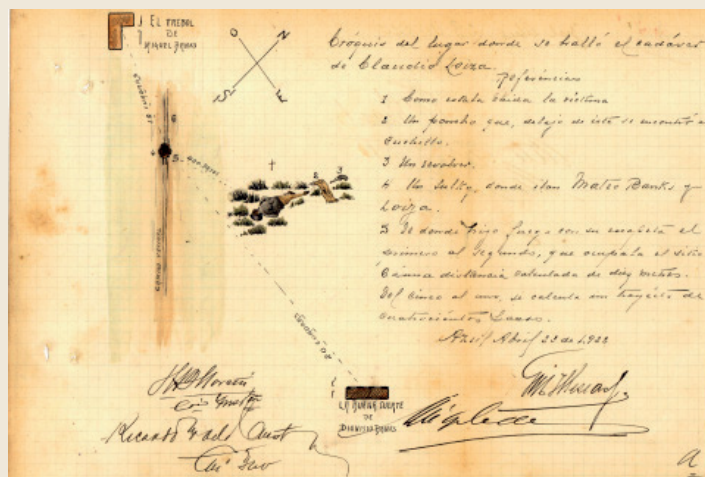 El TREBOL
DE
MIGUEL BANKS
O N
S E
Cróquis del lugar donde se halló el cadáver
de Claudio Loiza.
Referencias
1 Como estaba caida la víctima
2 Un poncho que, debajo de este se encontró el
Cuchillo.
3 Un revolver.
4 Un Sulky, donde iban Mateo Banks y
Loiza.
5 De donde hizo fuego con su escopeta el
primero al segundo, que ocupaba el sitio
6 á una distancia calculada de diez metros.
Del cinco al uno, se calcula un trayecto de
cuatrocientos pasos.
Azul, Abril 23 de 1.922
6
4 5
1 2 3
CAMINO VECINAL
LA BUENA SUERTE
DE
DIONISIO BANKS
Ricardo